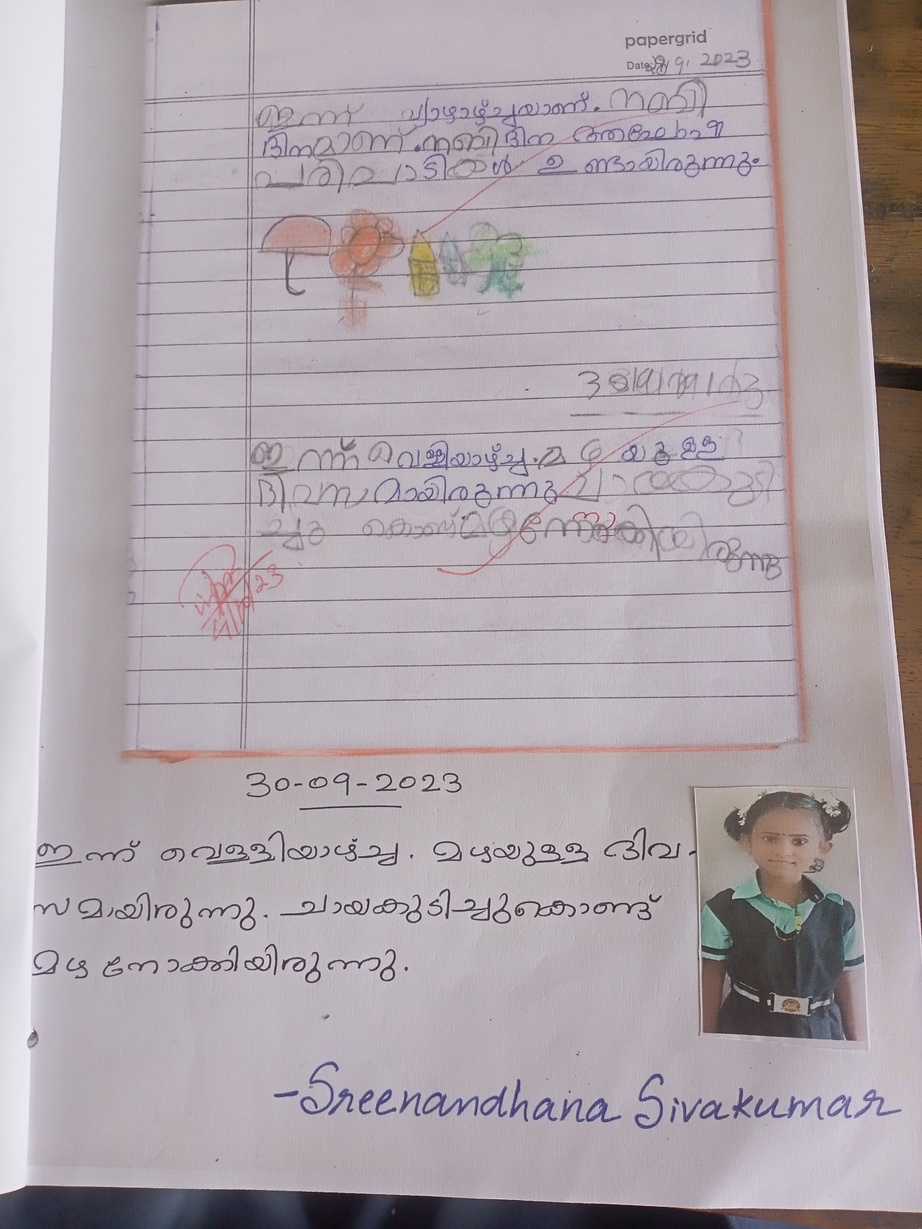 papergrid
Date: 9, 2023
ഇന്ന് വ്യാഴാഴ്ചയാണ്. നബി
ദിനമാണ്. നബി ദിന
പരിപാടികൾ ഉണ്ടായിരുന്നു.
ഇന്ന് വെള്ളിയാഴ്ച. മഴ യുള്ള
ദിവസമായിരുന്നു ചായകുടി
ച്ചു കൊണ്ട് മഴ നോക്കിയിരുന്നു
30-09-2023
ഇന്ന് വെള്ളിയാഴ്ച. മഴയുള്ള ദിവ-
സമായിരുന്നു. ചായകുടിച്ചുകൊണ്ട്
മഴ നോക്കിയിരുന്നു.
-Sreenandhana Sivakumar